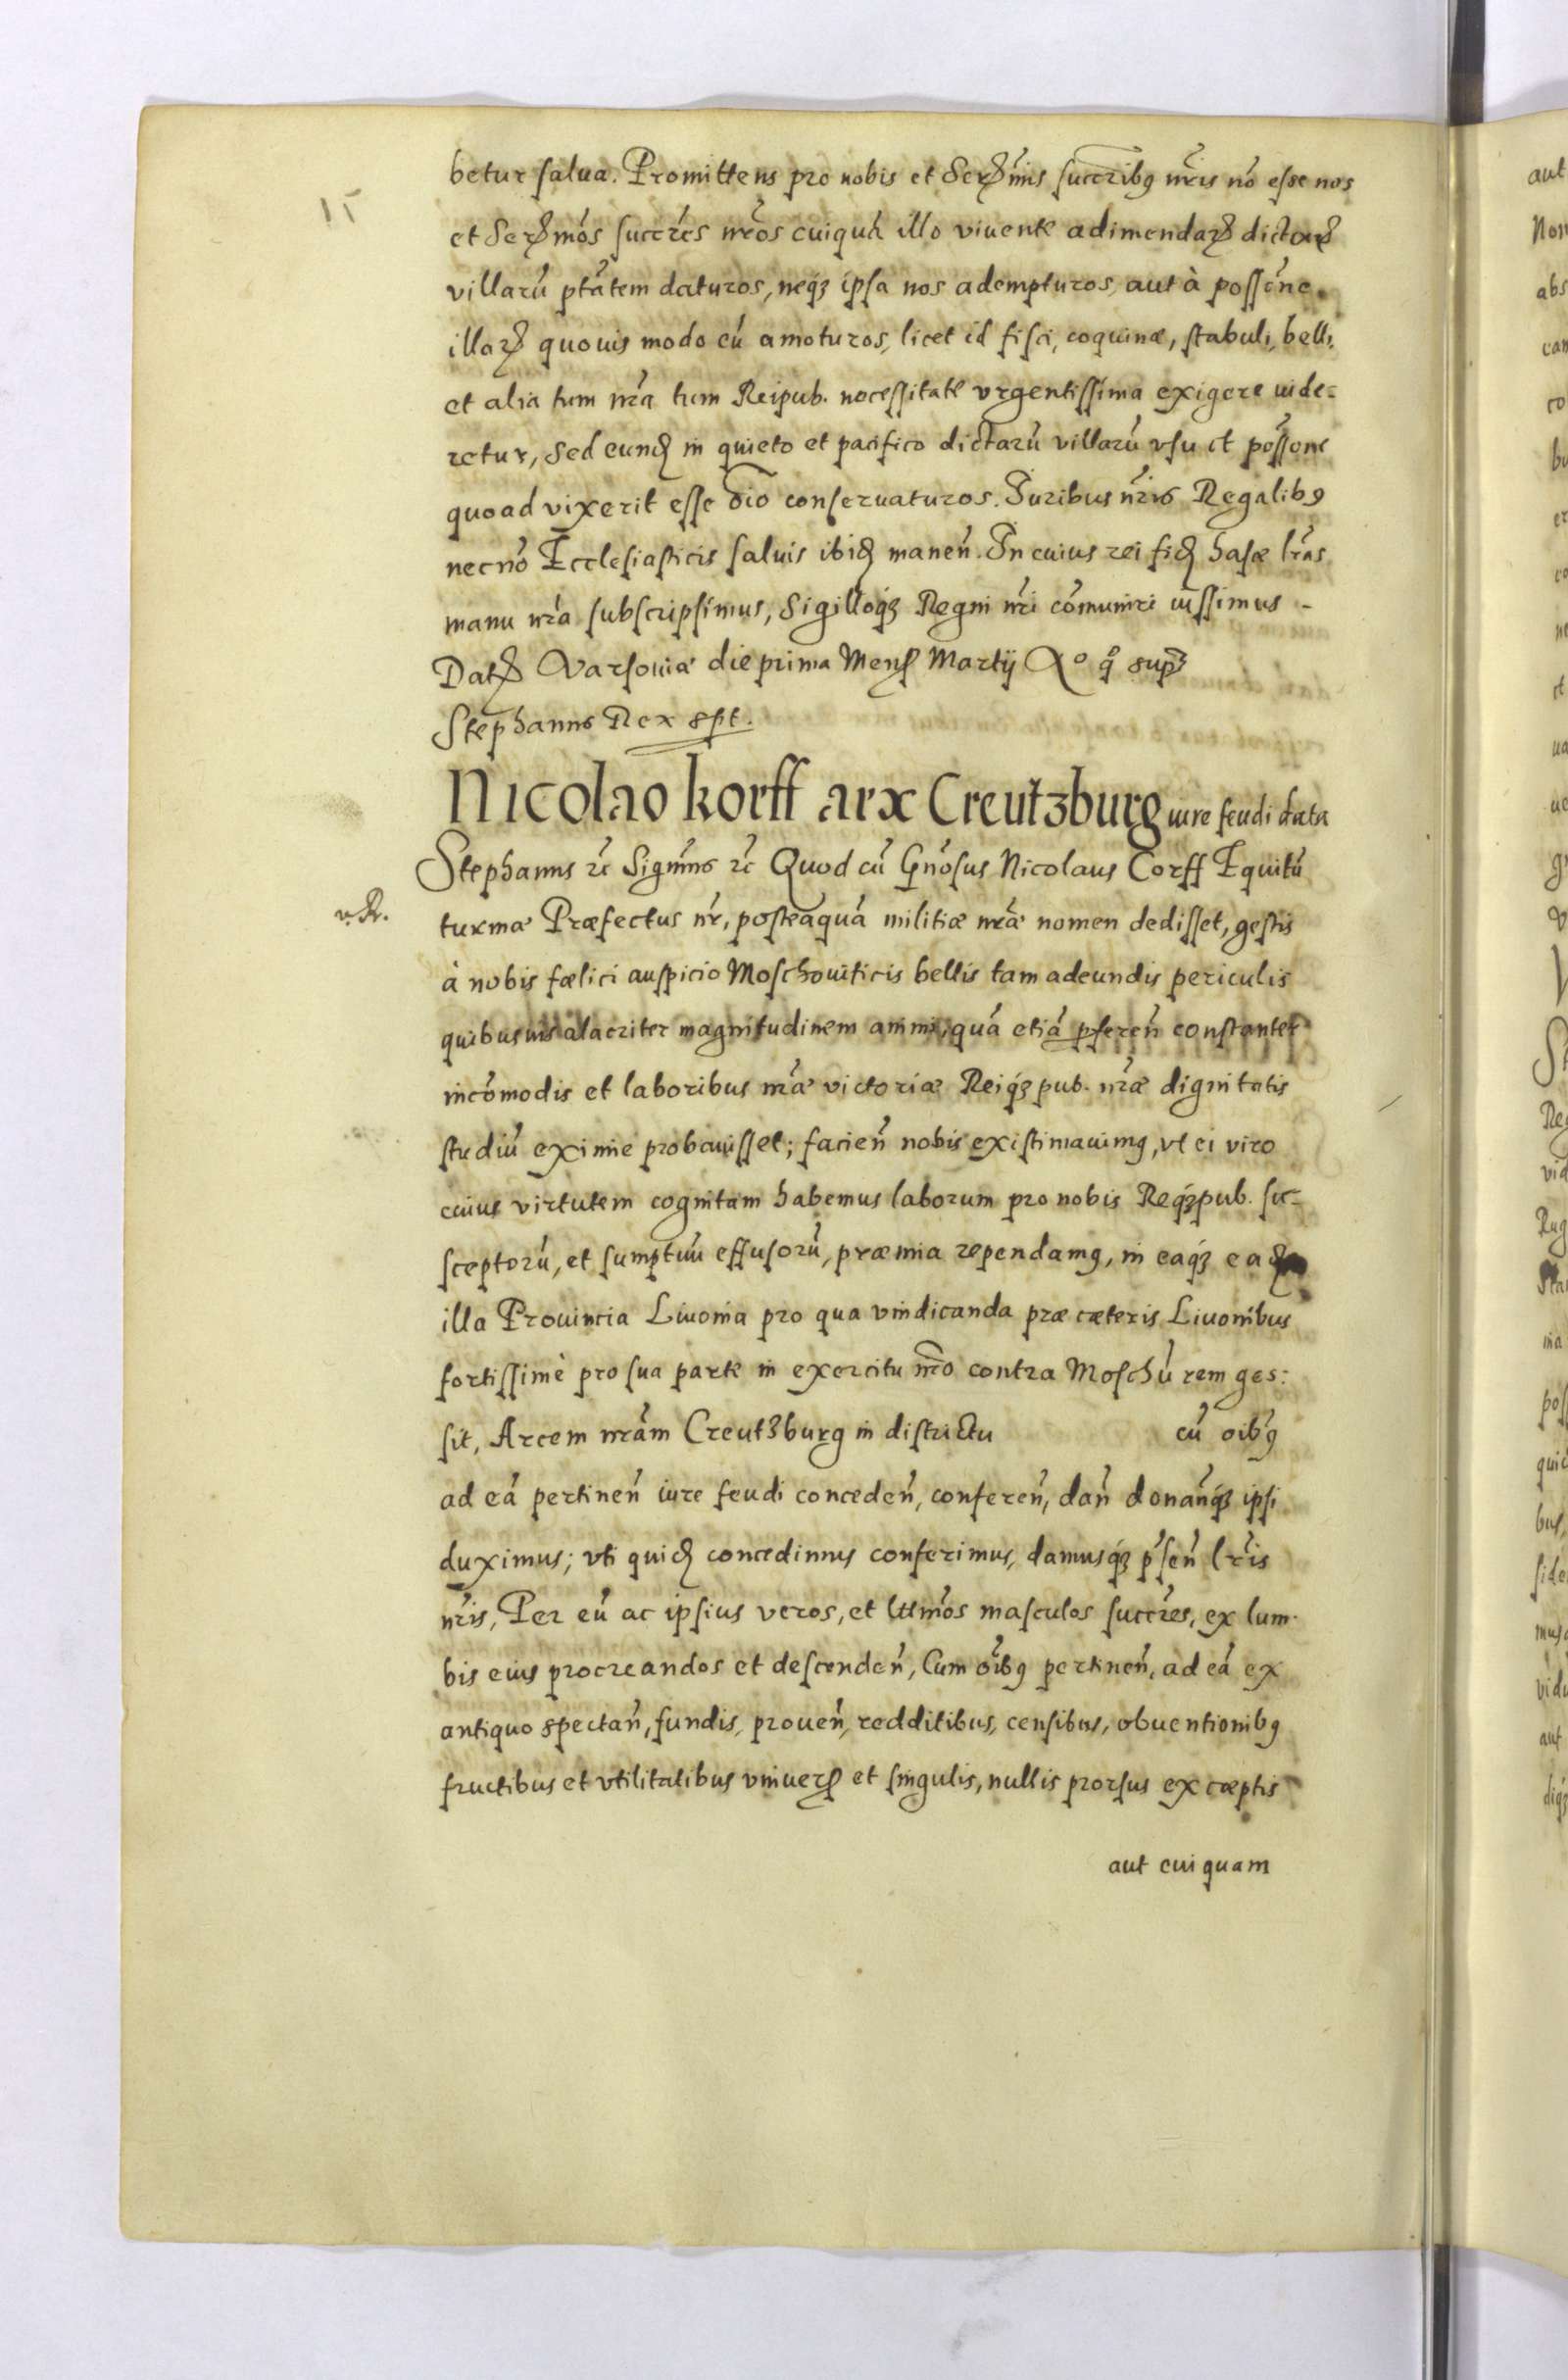 betur salua. Promittens pro nobis et Serꝫmis succrībꝰ nr̃is nō esse nos
et Serꝫmōs succrēs nr̃os cuiquā illo viuente adimendaꝝ dictaꝝ
villarū ptātem daturos, neqꝫ ipsa nos adempturos, aut à possēne
illaꝝ quouis modo eū amoturos, licet id fisci, coquinæ, stabuli, belli,
et alia tum nr̃a tum Reipub. necessitate vrgentissima exigere uide-
retur, sed eundꝫ in quieto et pacifico dictarū villarū vsu et possone
quoad vixerit esse õio conseruaturos. Iuribus nr̃is Regalibꝰ
necnō Ecclesiasticis saluis ibidꝫ maneñ. In cuius rei fidꝫ hasce lr̃as
manu nr̃a subscripsimus, Sigilloqꝫ Regni nr̃i cōmuniri iussimus -
Datꝫ Varsouiæ die prima Mensꝫ Martij Aº qº supꝫ
Stephanus Rex sp̃t.
Nicolao korff arx Creutzburg iure feudi data
Stephanus ꝛc Signm̃s ꝛc Quod cū Gnōsus Nicolaus Corff Equitū
turmæ Præfectus nr̃, posteaquā militiæ nr̃æ nomen dedisset, gestis
à nobis fœlici auspicio Moschouiticis bellis tam adeundis periculis
quibusuis alacriter magnitudinem animi, quā etiā ꝑfereñ constanter
incōmodis et laboribus nr̃æ victoriæ Reiqꝫ pub. nr̃æ dignitatis
studiū eximie probauisset; facieñ nobis existimauimꝰ, vt ei viro
cuius virtutem cognitam habemus laborum pro nobis Reqꝫpub. su-
sceptorū, et sumptuū effusorū, præmia rependamꝰ, in eaqꝫ eadꝫ
illa Prouincia Liuonia pro qua vindicanda præ cæteris Liuonibus
fortissimè pro sua parte in exercitu nr̃o contra Moschū rem ges:
sit, Arcem nr̃am Creutzburg in districtu cū oībꝰ
ad eā pertineñ iure feudi concedeñ, confereñ, dañ donañqꝫ ipsi
duximus; vti quidꝫ concedimus conferimus, damusqꝫ p̃señ lr̃is
nr̃is, Per eū ac ipsius veros, et lttmōs masculos succrēs, ex lum-
bis eius procreandos et descendeñ, Cum oībꝰ pertineñ, ad eā ex
antiquo spectañ, fundis, proueñ, redditibus, censibus, obuentionibꝰ
fructibus et vtilitatibus vniuersꝫ et singulis, nullis prorsus excæptis
aut cuiquam